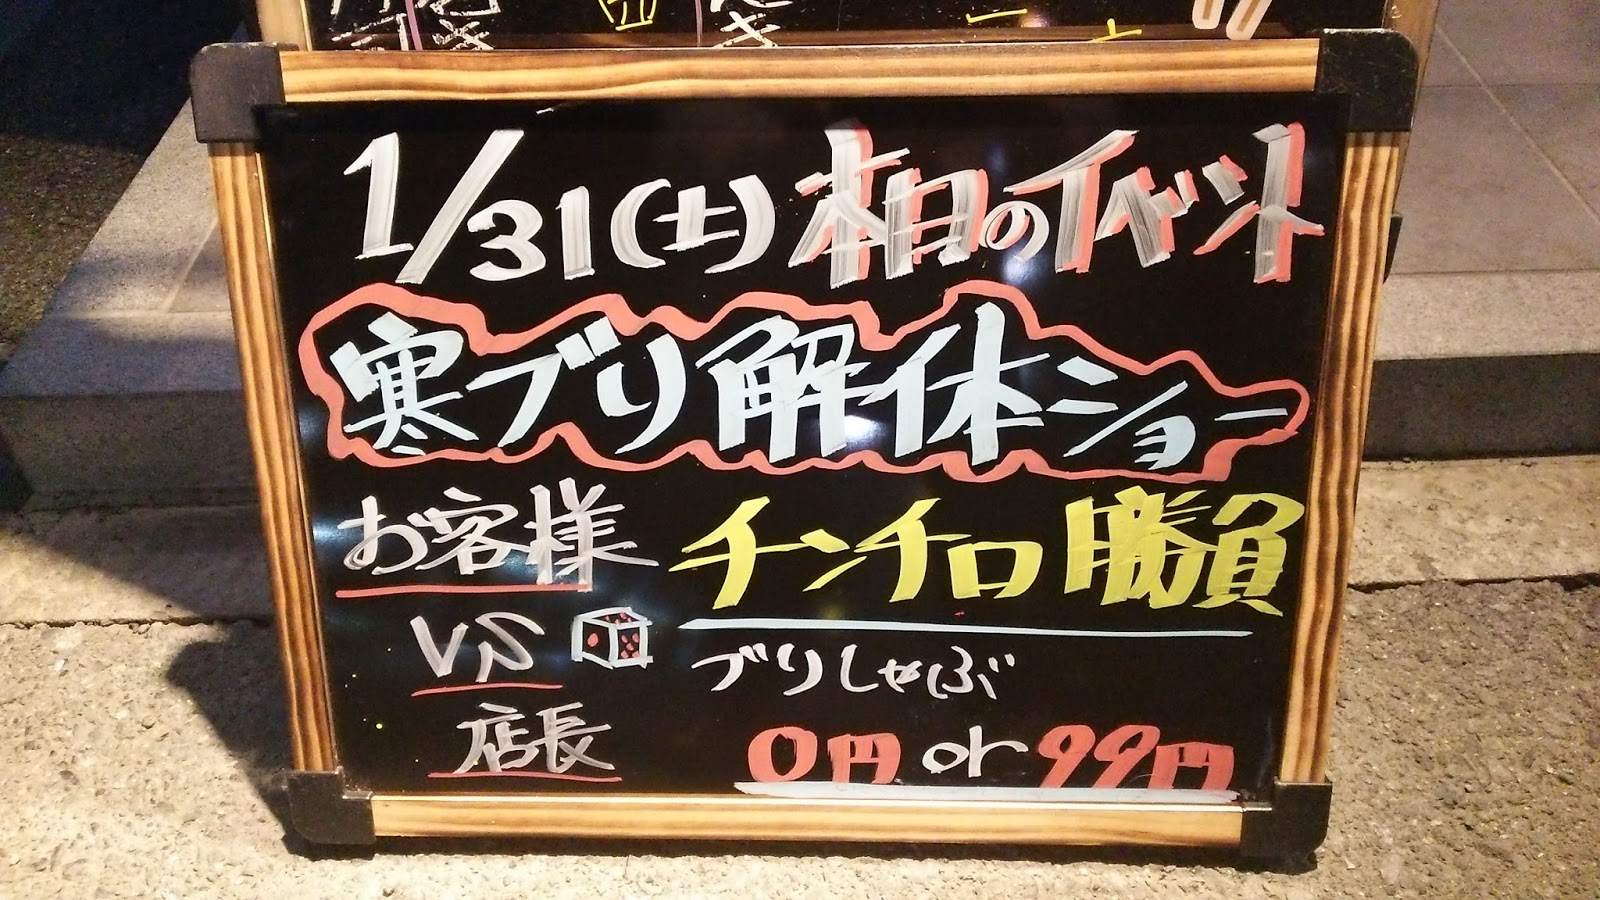 1/31(土)本日のイベント
寒ブリ解体ショー
お客様
VS
店長
チンチロ勝負
ブリしゃぶ
0円 or 99円